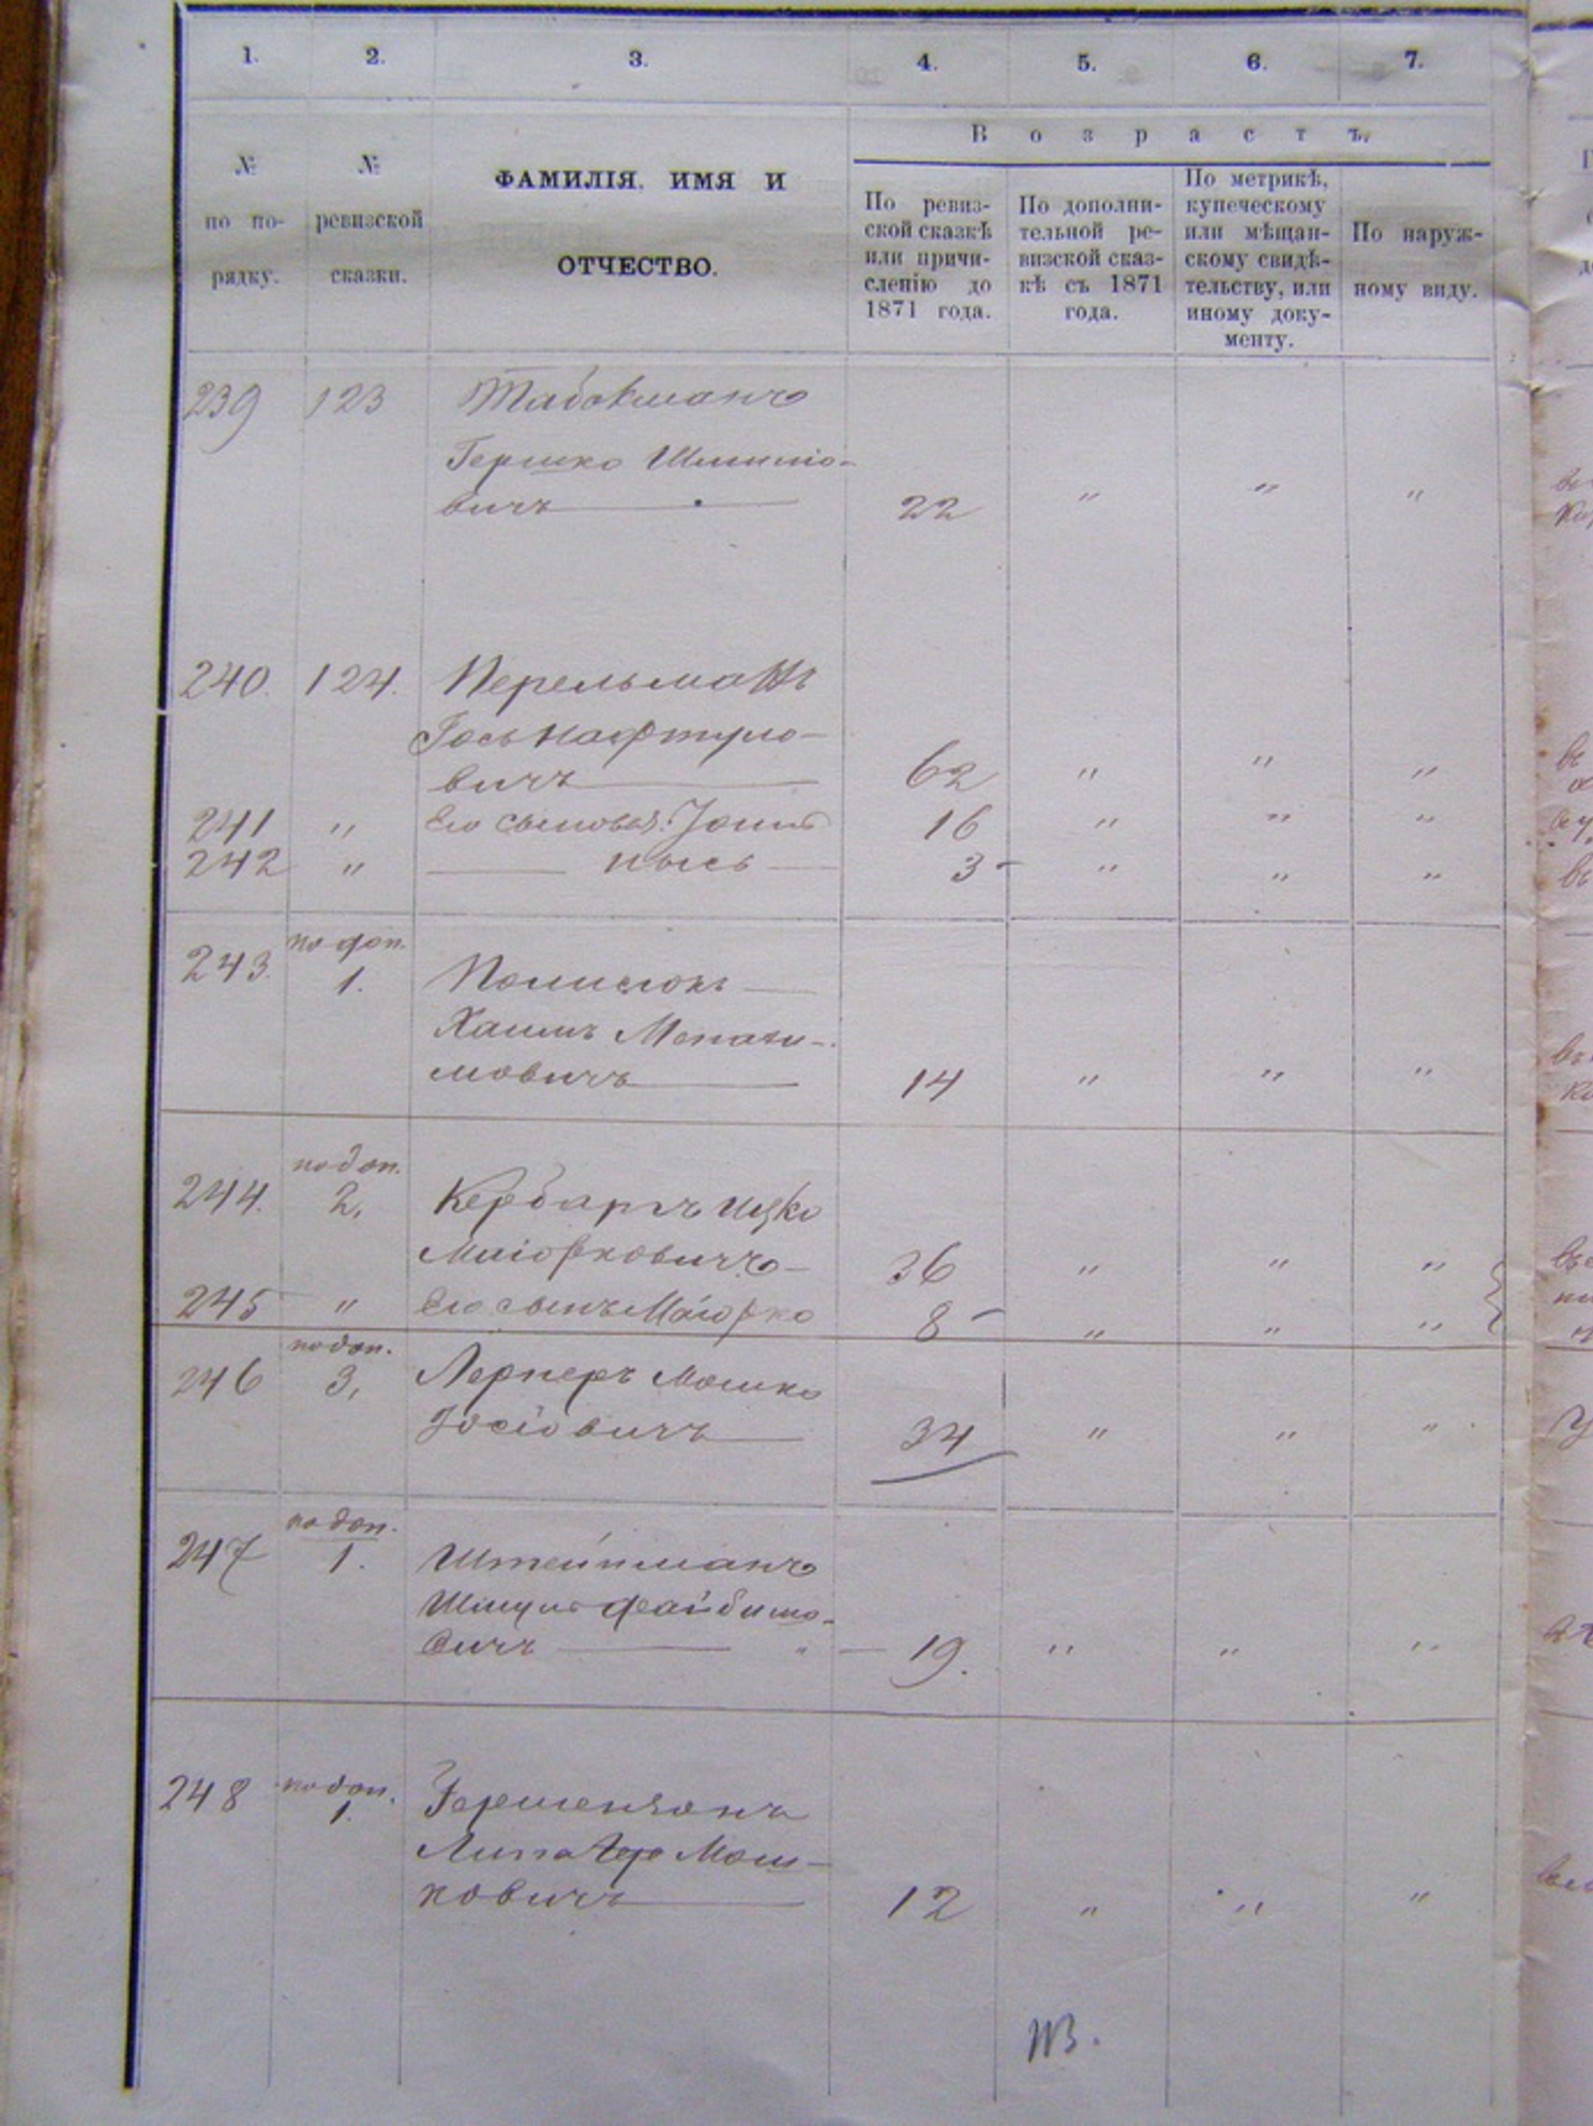 1. 2. 3. 4. 5. 6. 7.
№ по порядку.
№ ревизской сказки.
ФАМИЛІЯ, ИМЯ И
ОТЧЕСТВО.
Возрастъ.
По ревиз-
ской сказкѣ
или причи-
сленію до
1871 года.
По дополни-
тельной ре-
визской сказ-
кѣ съ 1871
года.
По метрикѣ,
купеческому
или мѣщан-
скому свидѣ-
тельству, или
иному доку-
менту.
По наруж-
ному виду.
239 123 Табокманъ
Гершко
вичъ 22 " " "
240. 124. Перельманъ
Іось Нафтуло-
вичъ 62 " " "
241 " Его сыновья: 16 " " "
242 " 3 " " "
243. по доп. 1.
Хаимъ
мовичъ 14 " " "
244. по доп. 2, Кербаргъ Ицко
Маіорковичъ 36 " " "
245 " Его сынъ Маіорко 8 " " "
246 по доп. 3, Лернеръ Мошко
Іосіовичъ 34 " " "
247 по доп. 1. Штейнманъ
Шмуль Файбишо-
вичъ 19. " " "
248 по доп. 1. Гершензонъ
Мош-
ковичъ 12 " " "